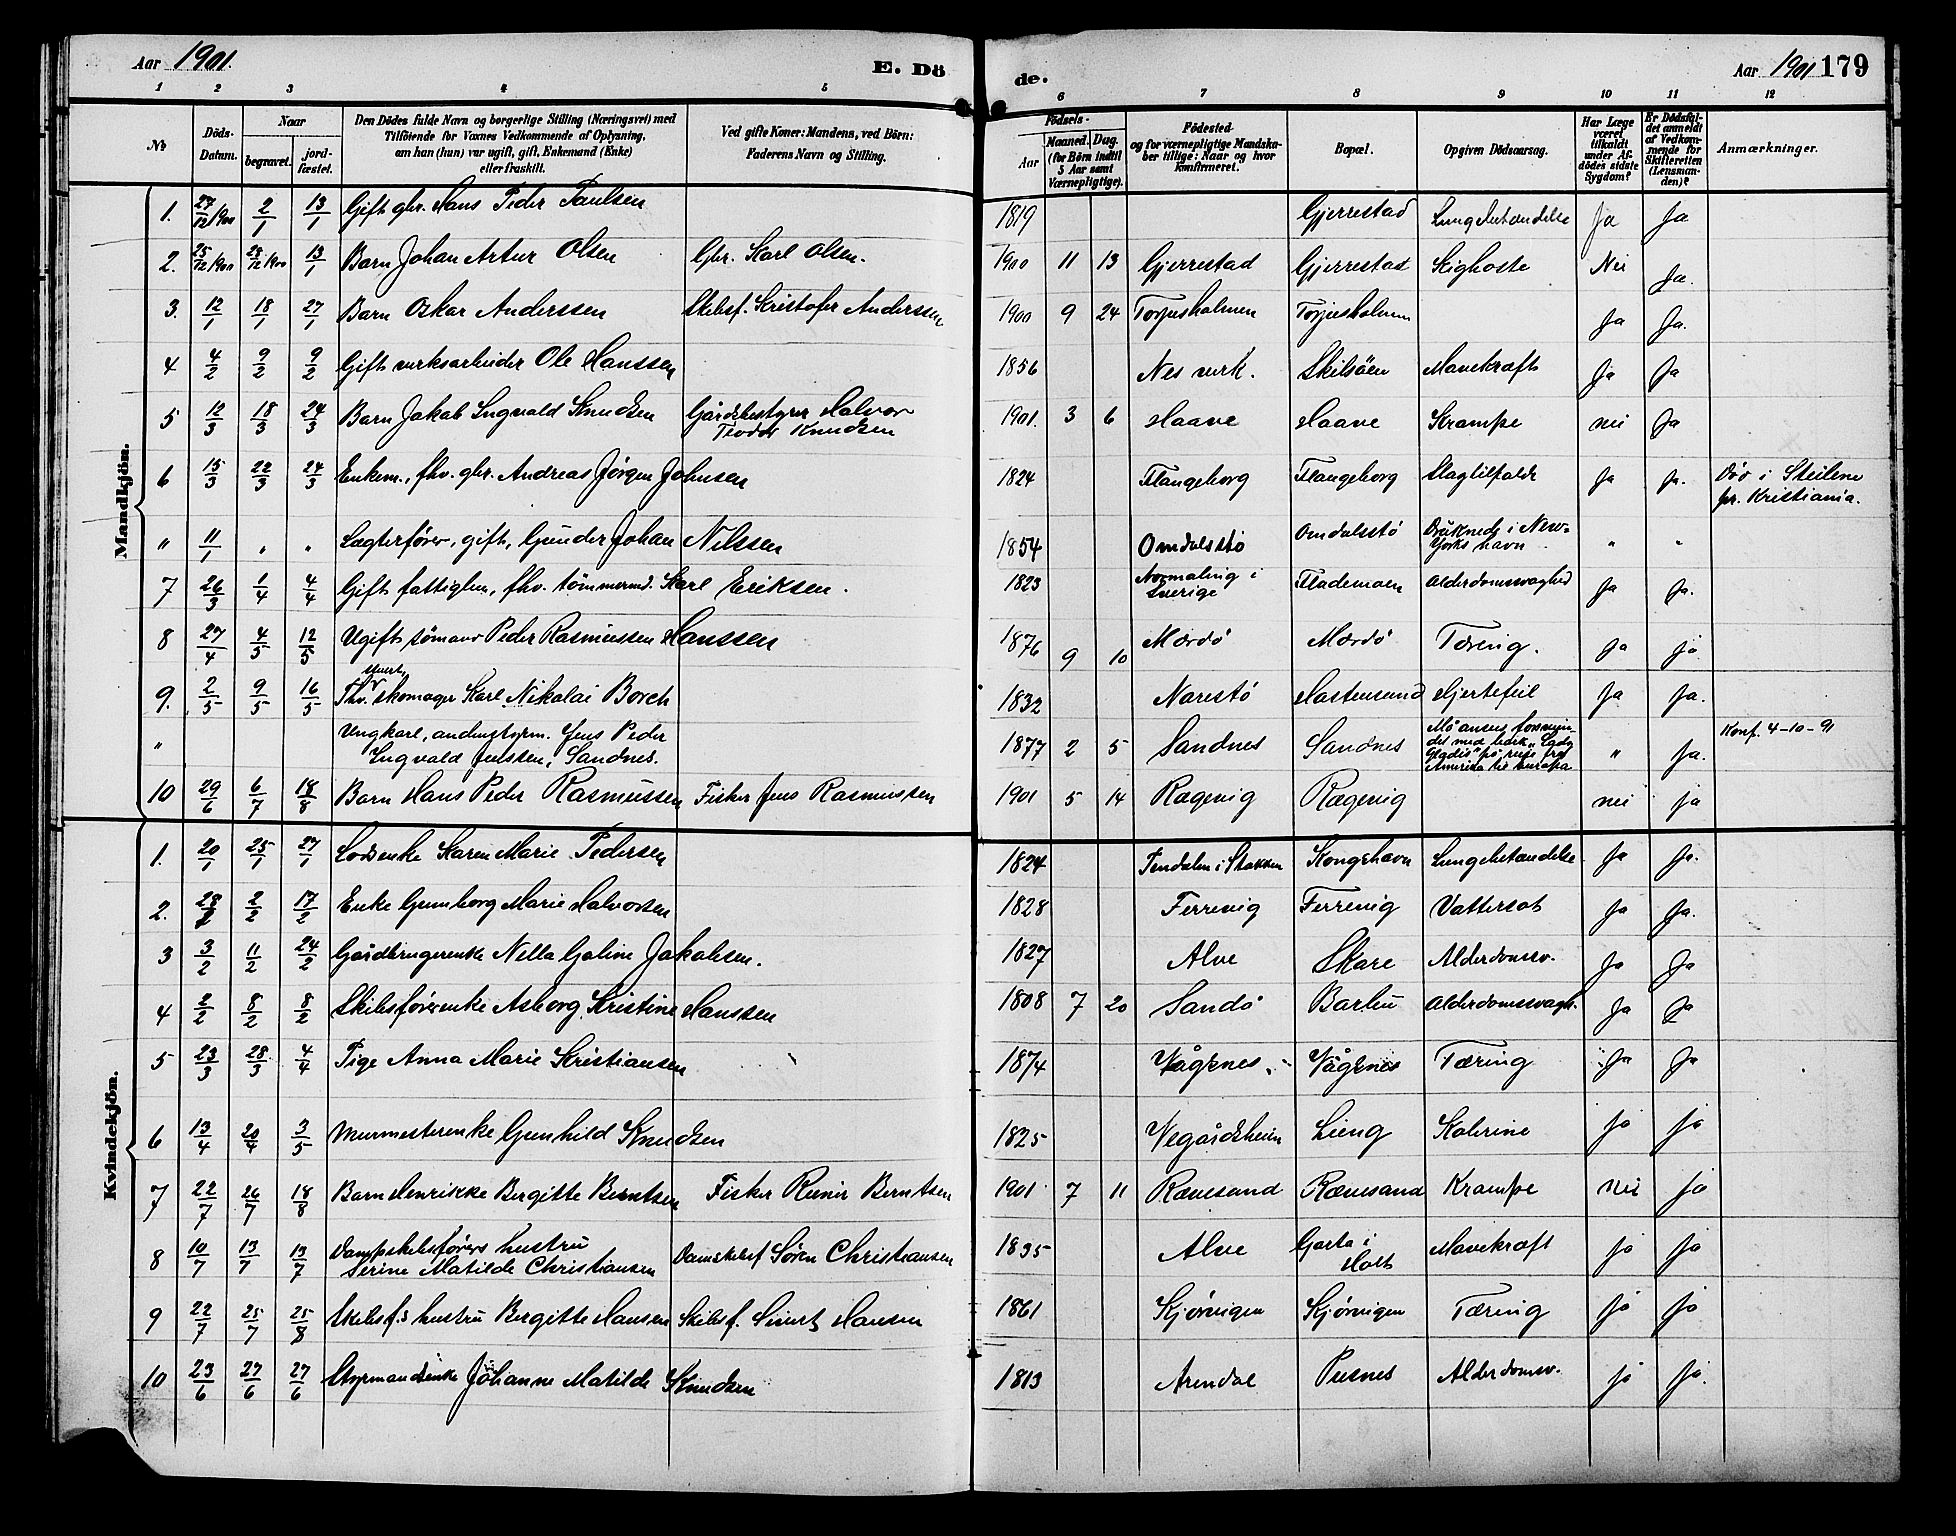 Aar 1901. E. Dö
de. Aar 1901 179
1 2 3 4 5
6 7 8 9 10 11 12
No
Döds-Datum.
Naar
begravet. jord-fæstet.
Den Dödes fulde Navn og borgerlige Stilling (Næringsvei) med
Tilföiende for Voxnes Vedkommende af Oplysning,
om han (hun) var ugift, gift, Enkemand (Enke)
eller fraskilt.
Ved gifte Koner: Mandens, ved Börn:
Faderens Navn og Stilling.
Födsels-
Aar Maaned. Dag.
(for Börn indtil
5 Aar samt
Værnepligtige).
Födested
og for værnepligtige Mandska-
ber tillige: Naar og hvor
konfirmeret.
Bopæl.
Opgiven Dödsaarsag.
Har Læge
været
tilkaldt
under Af-
dödes sidste
Sygdom?
Er Dödsfal-
det anmeldt
af Vedkom-
mende for
Skifteretten
(Lensman-
den)?
Anmærkninger.
Mandkjön.
1. 27/12 1900 2/1 13/1 Gift gbr. Hans Peder Paulsen 1819 Gjerrestad Lungebetændelse Ja Ja
2. 25/12 1900 28/12 1900 13/1 Barn Johan Artur Olsen Gbr. Karl Olsen. 1900 11 13 Gjerrestad Gjerrestad Kighoste Nei Ja.
3. 12/1 18/1 27/1 Barn Oskar Anderssen Skibsf. Kristofer Anderssen 1900 9 24 Torjusholmen Torjusholmen Ja Ja.
4 4/2 9/2 9/2 Gift verksarbeider Ole Hanssen 1856 Nes verk. Skilsöen Mavekræft Ja Ja
5 12/3 18/3 24/3 Barn Jakob Ingvald Knudsen Gårdsbestyrer Halvor
Teodor Knudsen 1901. 3 6 Haave Haave Krampe nei Ja
6 15/3 22/3 24/3 Enkem., fhv. gbr. Andreas Jörgen Johnsen 1824 Flangeborg Flangeborg Slagtilfælde Ja Ja. Död i Steilene
pr. Kristiania.
" 11/1 " " Lægterförer, gift, Gunder Johan Nilssen 1854 Omdalsstö Omdalsstö Druknede i New-
Yorks havn " "
7 26/3 1/4 4/4 Gift fattiglem, fhv. tömmermd. Karl Eriksen. 1823 Normaling i
Sverige Flademoen Alderdomssvaghed Ja Ja.
8 27/4 4/5 12/5 Ugift sömand Peder Rasmussen Hanssen 1876 9 10 Mærdö Mærdö Tæring. Ja ja
9. 2/5 9/5 16/5 Fhv. skomager Karl Nikolai Borch 1832 Narestö Hastensund Hjertefeil Ja Ja.
" Ungkarl, andenstyrm. Jens Peder
Ingvald Jenssen, Sandnes. 1877 2 5 Sandnes Sandnes Må ansees forsvin-
det med bark "Lady
Gladis" på reise fra
Amerika til Europa " Ja. Konf. 4-10-91
10 29/6 6/7 18/8 Barn Hans Peder Rasmussen Fisker Jens Rasmussen 1901 5 14 Rægevig Rægevig nei ja
Kvindekjön.
1. 20/1 25/1 27/1 Lodsenke Karen Marie Pedersen 1824 Kongshavn Lungebetændelse Ja Ja.
2. 2/2 17/2 Enke Gunborg Marie Halvorsen 1828 Ferrevig Ferrevig Vattersot Ja Ja.
3 3/2 11/2 24/2 Gårdbrugerenke Nella Galine Jakobsen. 1827 Alve Skare Alderdomssv. Ja Ja
4 2/2 8/2 8/2 Skibsförerenke Asborg Kristine Hanssen 1808 7 20 Sandö Barbu Alderdomssvagh. Ja Ja
5 23/3 28/3 4/4 Pige Anna Marie Kristiansen 1874 Vågenes Vågenes Tæring Ja Ja
6 13/4 20/4 3/5 Murmesterenke Gunhild Knudsen 1825 Vegårdsheien Lieng Kolerine ja ja
7 22/7 26/7 18/8 Barn Henrikke Bergitte Berntsen Fisker Reinir Berntsen 1901 7 11 Rævesand Rævesand Krampe nei ja
8 10/7 13/7 13/7 Dampskibsförers hustru
Serine Matilde Christiansen Damskibsf Sören Christiansen 1835 Alve Garta i
Holt Mavekræft ja ja
9 22/7 25/7 25/8 Skibsf.s hustru Bergitte Hansen Skibsf. Sivert Hansen 1861 Kjörvigen Kjörvigen Tæring ja ja
10 23/6 27/6 27/6 Styrmandsenke Johanne Matilde Knudsen 1813 Arendal Pusnes Alderdomsv. ja ja.